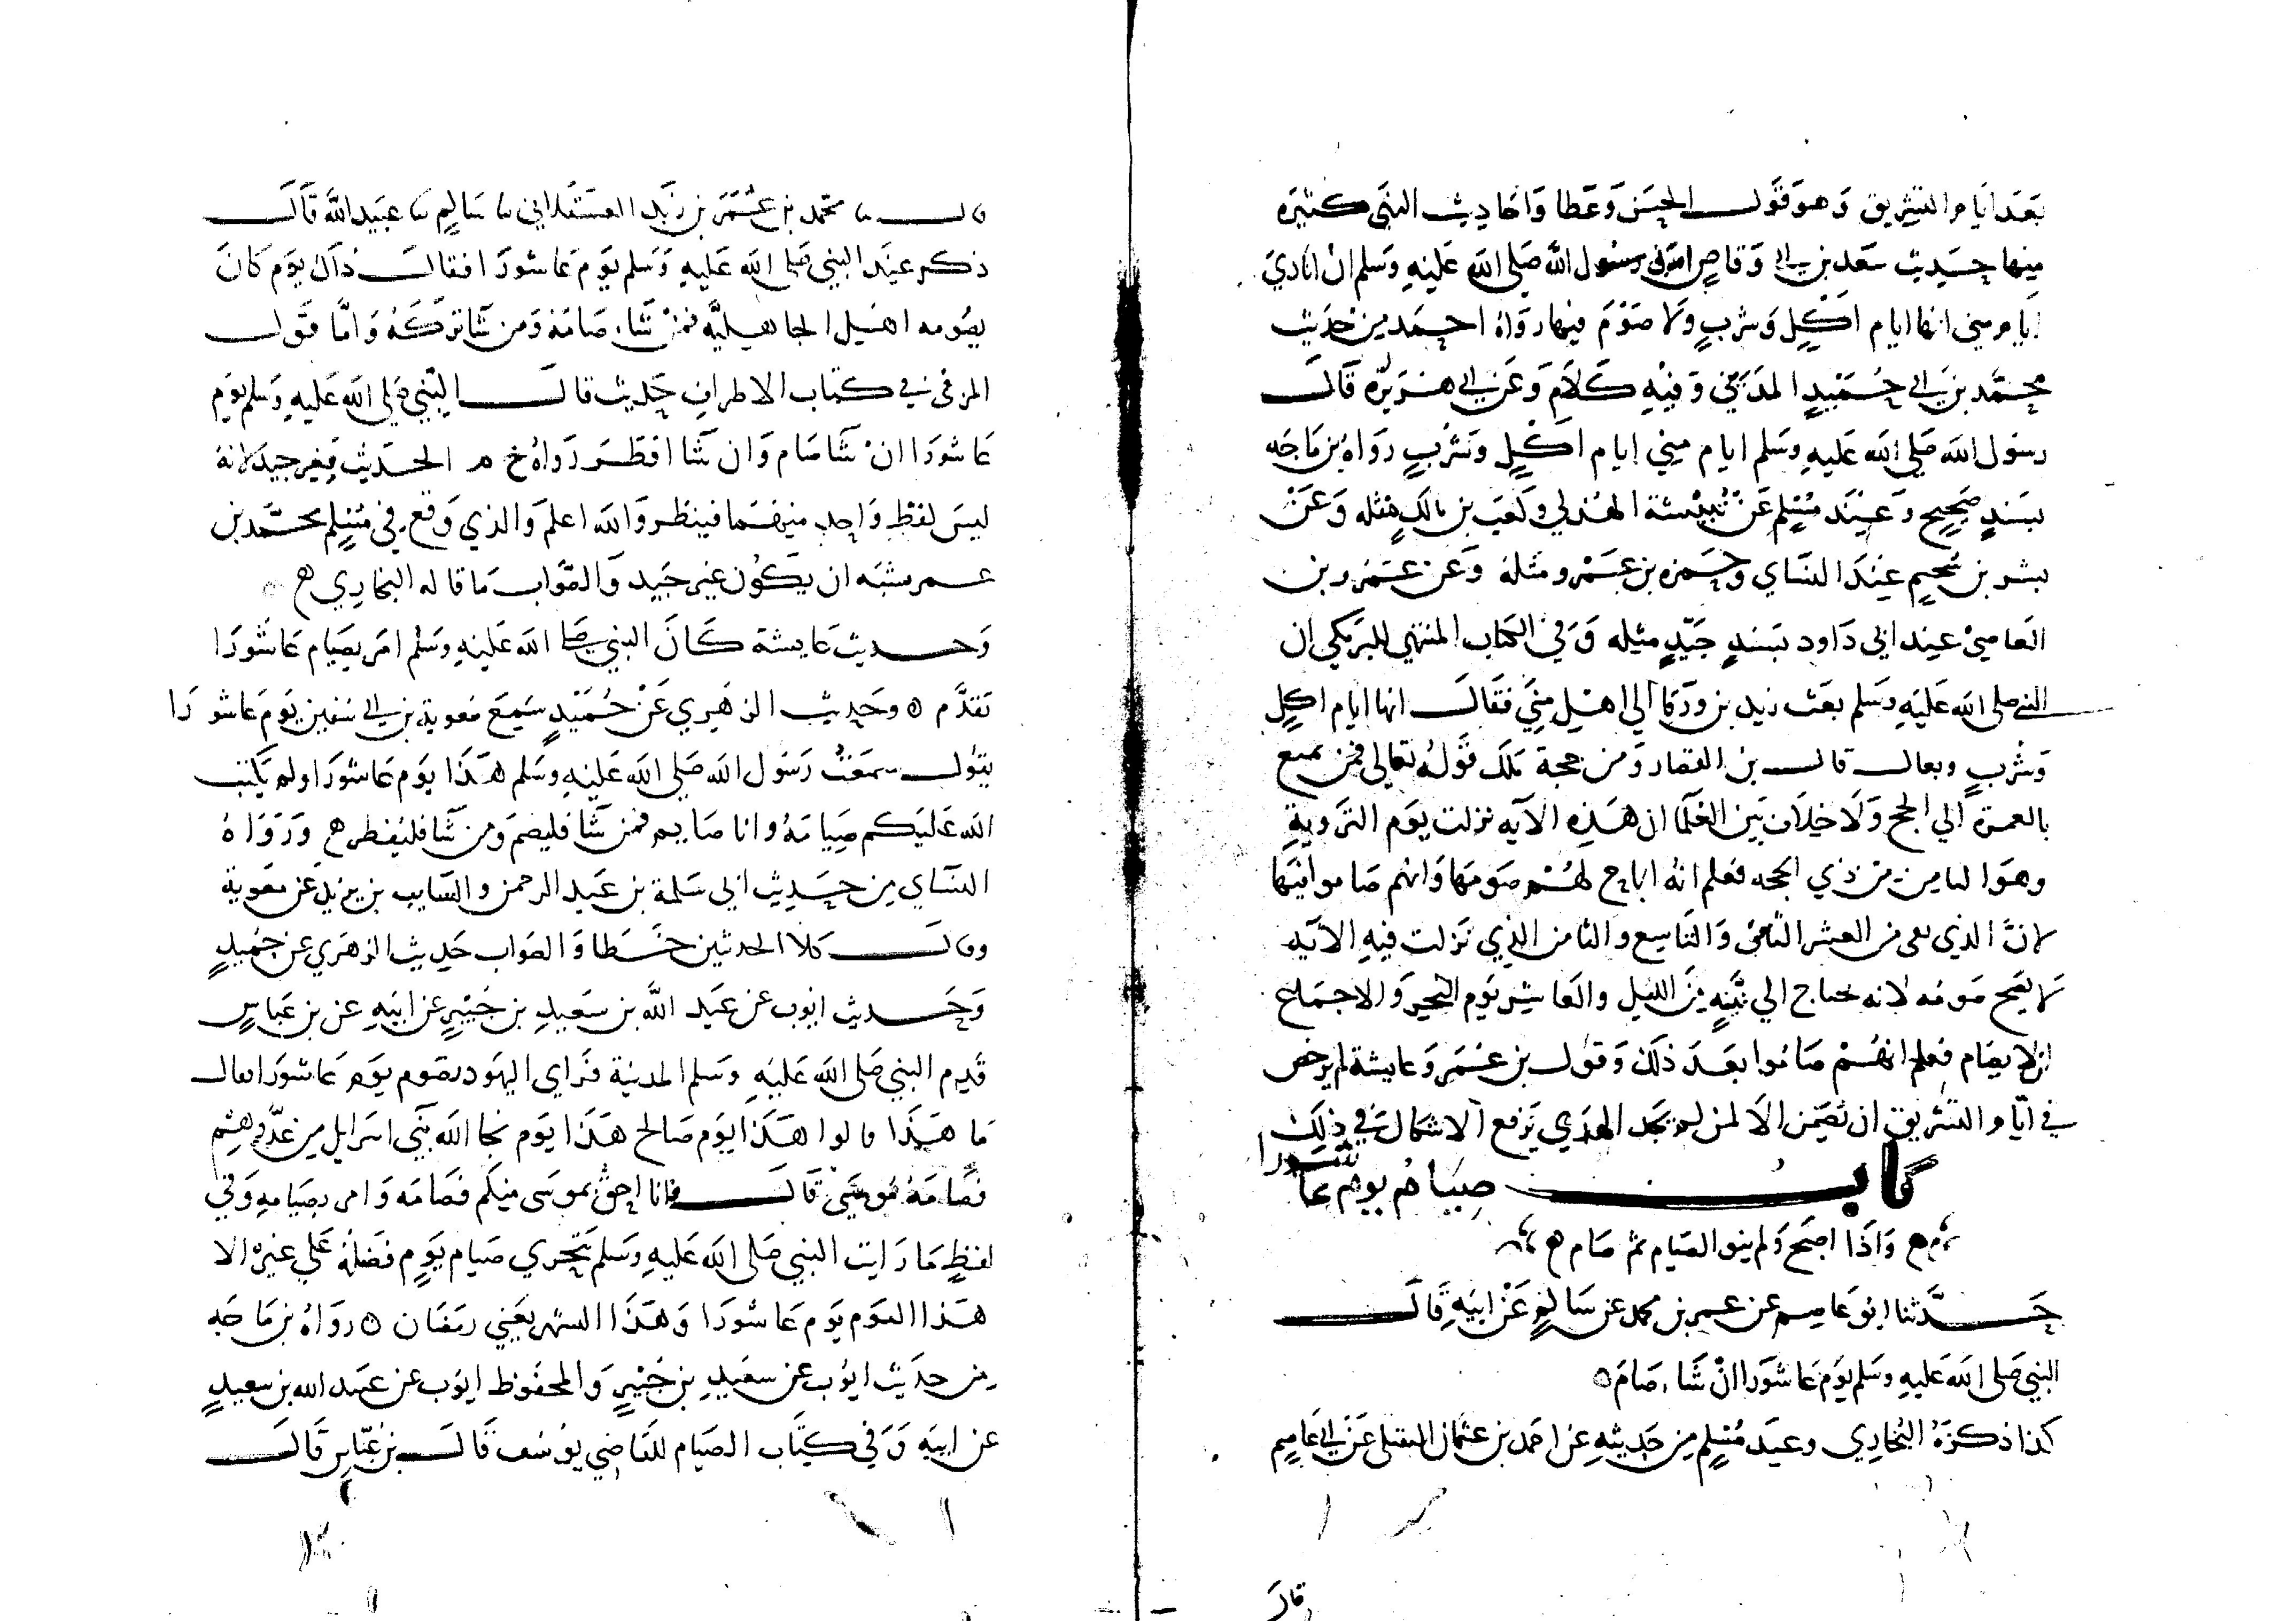 بَعدَ ايام التشريق وَهوَ قَول الحسَن وَعَطا وَاحاديث النهي كثيرَه
مِنها حَديث سَعَد بن ابي وَقاصٍ امرَني رسُول الله صَلى الله عَليهِ وَسَلم ان انادي
ايام مني انها ايام اَكلٍ وَشربٍ وَلا صَوْمَ فيها رَواهُ احمَد مِن حَديث
محمَّد بن ابي حُمَيْدٍ المدَني وَفيهِ كلام وَعَن ابي هرَيرَه قَالَ
رسُول الله صَلى الله عَليهِ وَسَلم ايام مِني ايام اكلٍ وَشُربٍ رَواهُ بن مَاجَه
بسَندٍ صَحِيحٍ وَعِنَد مُسْلِم عَن نُبَيْشة الهُذلي وكعَب بن مالكٍ مثله وَعَنْ
بشر بن سُحيمٍ عِندَ النسَاي وحَمزه بن عَمْرو مثله وَعَن عَمَرو بن
العَاصي عِند ابي دَاود بسَندٍ جَيّدٍ مثله وَفي الكتاب المنتهي للبَرمكي ان
النبي صلى الله عَليهِ وَسَلم بعَث زيد بن وَرَقا الي اهلِ مِنيً فقَالَ انها ايام اكلٍ
وَشُربٍ وبعال قال بن القصار وَمن حجة مَلك قَولهُ تعَالى فمن تمتع
بالعمرة الي الحج وَلَا خلاف بَين العُلما ان هَذِه الآيه نزلت يَوم التروية
وهوَ الثامن مِن ذي الحجه فعلم انهُ اباح لهُم صَومَها وَانهم صَاموا فيها
لانَّ الذي بقى من العشر الثامن وَالتاسِع والثامن الذِي نَزلت فيهِ الايه
لا يَصح صَومُه لانه يحتاج الي نيةٍ مِن الليل والعَاشِر يَوم النحر وَالاجماع
ان لا يصَام فعلم انهُم صَاموا بَعدَ ذلك وَقول بن عُمَر وَعايشة لم يرخص
في ايَّام التشريق ان يُصَمن الا لمن لم يجد الهدَي يَرفع الاشكال في ذلك
باب صِيَام يوم عاشورا
وَاذا اصبَح وَلم ينو الصيام ثم صَام
حَدَّثنا ابُو عَاصِم عن عمر بن محمد عَن سَالمٍ عَن ابيَهِ قَالَ
النبي صَلى الله عَليهِ وسَلم يَوم عَاشورَا انْ شَا صَامَ
كذا ذكرَهُ البُخَارِي وَعند مُسْلِم مِن حَديثهِ عن احمد بن عثمان النوفلي عَن ابي عَاصِم
قال
قال ثنا محمد بن عُمَرَ بن زَيد العَسقَلاني ثنا سَالمٍ ثنا عَبدالله قَالَ
ذكر عِندَ النبي صَلى الله عَليهِ وَسَلم يَوم عَاشورَا فقالَ ذاك يَوم كانَ
يصُومه اهل الجاهليَّه فمَن شَا صَامَهُ وَمن شَا تركهُ وَامَّا قَول
المزي في كتاب الاطرافِ حَديث قالَ النبي صَلى الله عَليهِ وَسَلم يَوم
عَاشورَا انْ شَا صَام وَان شَا افطَرَ رَواهُ خ م الحَديث فغير جيد لانهُ
ليسَ لفظ وَاحدٍ منهمَا فينظر وَالله اعلم وَالذي وَقع في مُسْلِم محمَّد بن
عمر يشبه ان يكون غير جَيد وَالصَّواب مَا قاله البخارِي
وَحديث عَايشة كَانَ النبي صَلى الله عَليهِ وَسَلم امَر بصيَام عَاشُورَا
تَقدَّم وحَدِيث الزهري عَن حُمَيْدٍ سَمِعَ مَعوية بن ابي سُفين يَوم عَاشورَا
يقول سَمعتُ رَسُول الله صَلى الله عَليهِ وَسَلم هَذا يَوم عَاشورَا ولم يكتب
الله عَليكم صِيامَهُ وانا صَايم فمَن شَا فليصُم وَمن شَا فليُفطر وَرَوَاهُ
النسَاي مِن حَديث ابي سَلمة بن عَبد الرحمن والسَّايب بن يزيد عَن معَوية
وقالَ كلا الحديثين خَطا وَالصَواب حَدِيث الزهَري عن حُمَيدٍ
وَحَديث ايُوب عن عَبد الله بن سَعيدِ بن جُبَيْرٍ عن ابيَهِ عن بن عَبَاسٍ
قَدِم النبي صَلى الله عَليهِ وَسَلم المدينة فَراي اليَهود تصَوم يَوم عَاشورَا فقال
مَا هَذا قالوا هَذا يَوم صَالح هَذا يَوم نجا الله بَني اسرايل مِن عَدُوهِم
فصَامَهُ مُوسَى قَالَ فانا احقُ بموسَى منكم فصَامَه وَامر بصيَامهِ وَفي
لفظٍ مَا رَايت النبي صَلى الله عَليهِ وَسَلم يَتحري صيَام يَومٍ فضلهُ عَلي غيره الا
هَذا اليَوم يَوم عَاشورَا وَهَذا الشهر يَعني رمَضان رَواهُ بن مَاجَه
مِن حديث ايُوب عن سَعَيدِ بن جُبَيْرٍ وَالمحفوظ ايوب عن عَبد الله بن سَعيدٍ
عَن ابيَه وَفي كتاب الصيَام للقَاضي يوسُف قَالَ بن عَبّاسٍ قَالَ